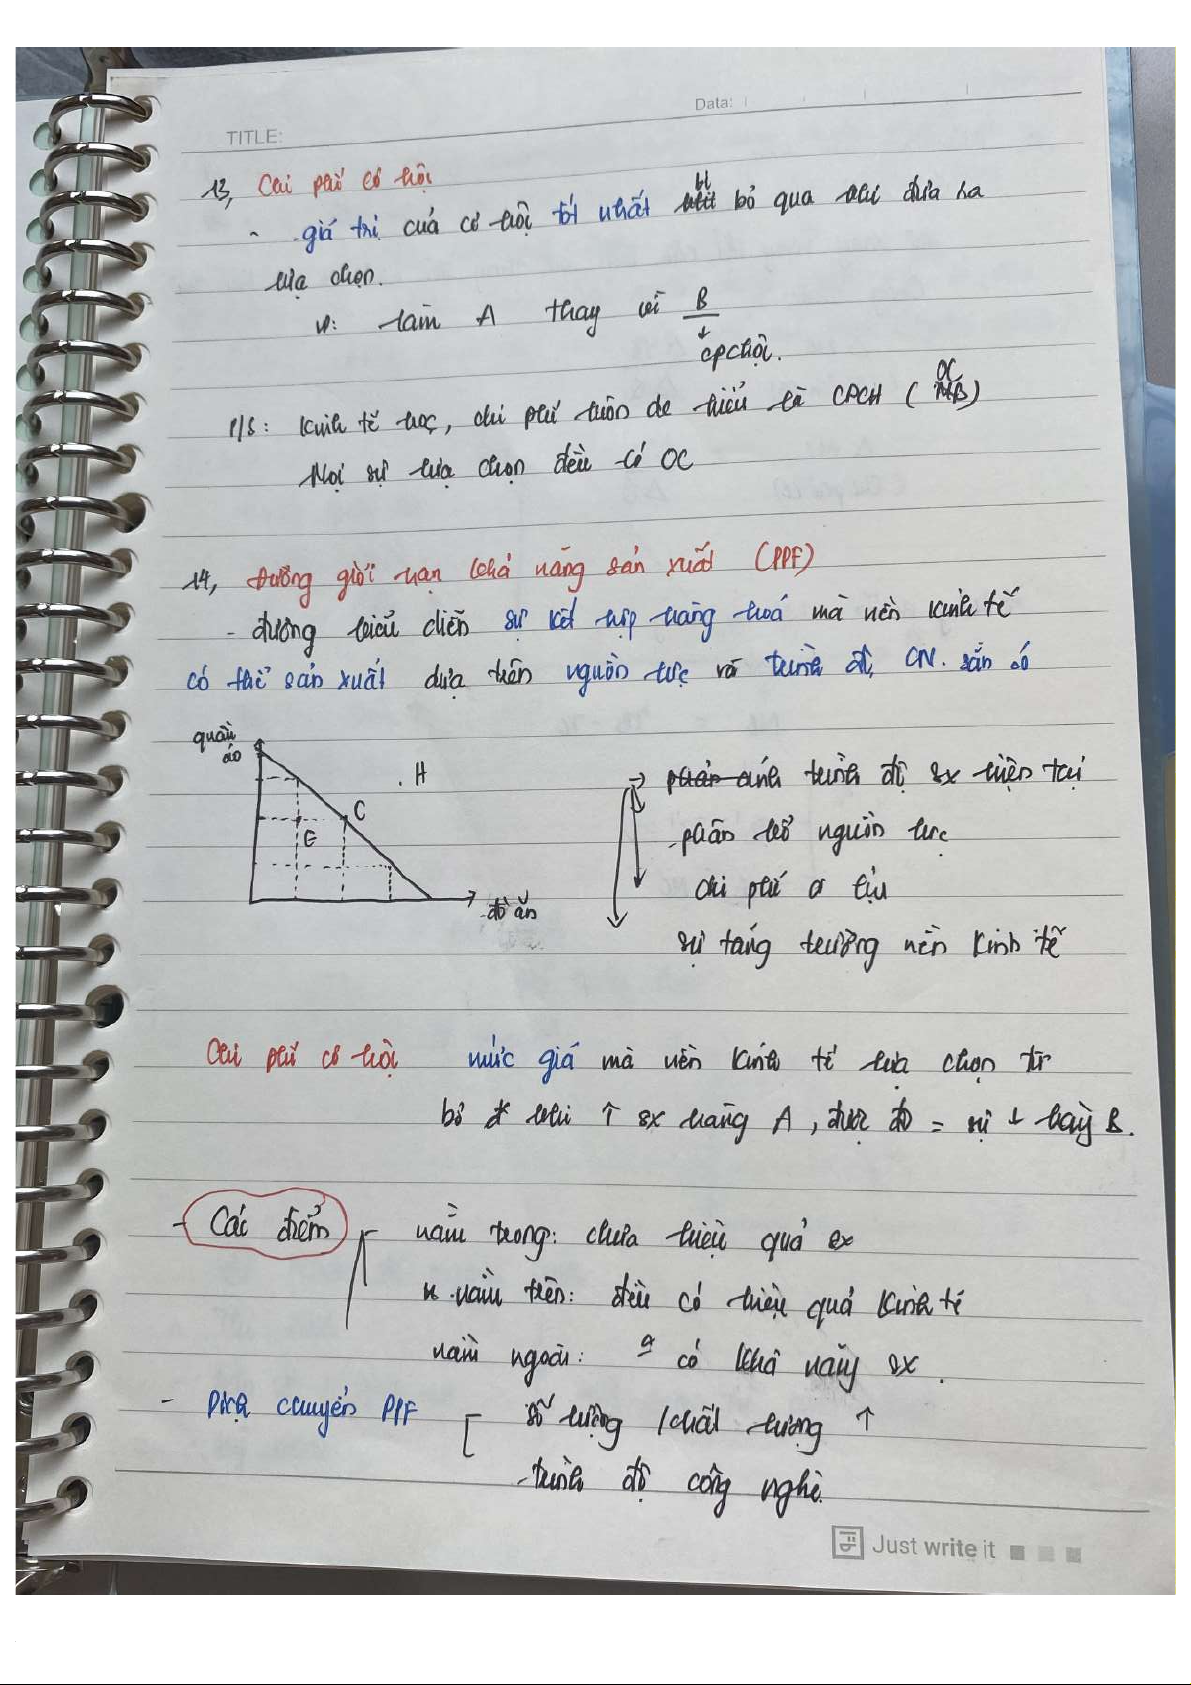 Data:
TITLE:
13, Chi phí cơ hội
- giá trị của cơ hội tốt nhất bị bỏ qua khi đưa ra
lựa chọn.
VD: làm A thay vì B
↓
cpchội.
P/S: Kinh tế học, chi phí luôn đc hiểu là CPCH (OC)
Mọi sự lựa chọn đều có OC
14, Đường giới hạn khả năng sản xuất (PPF)
- đường biểu diễn sự kết hợp hàng hoá mà nền kinh tế
có thể sản xuất dựa trên nguồn lực và trình độ CN. sẵn có
quần
áo
H
C
E
đồ ăn
→ phản ánh trình độ sx hiện tại
- phân bổ nguồn lực
chi phí cơ hội
sự tăng trưởng nền kinh tế
Chi phí cơ hội mức giá mà nền kinh tế lựa chọn từ
bỏ khi ↑ sx hàng A, được đo = sự ↓ hàng B.
- Các điểm
nằm trong: chưa hiệu quả sx
nằm trên: đều có hiệu quả kinh tế
nằm ngoài: có khả năng sx.
- Dịch chuyển PPF
số lượng / chất lượng ↑
- trình độ công nghệ.
Just write it